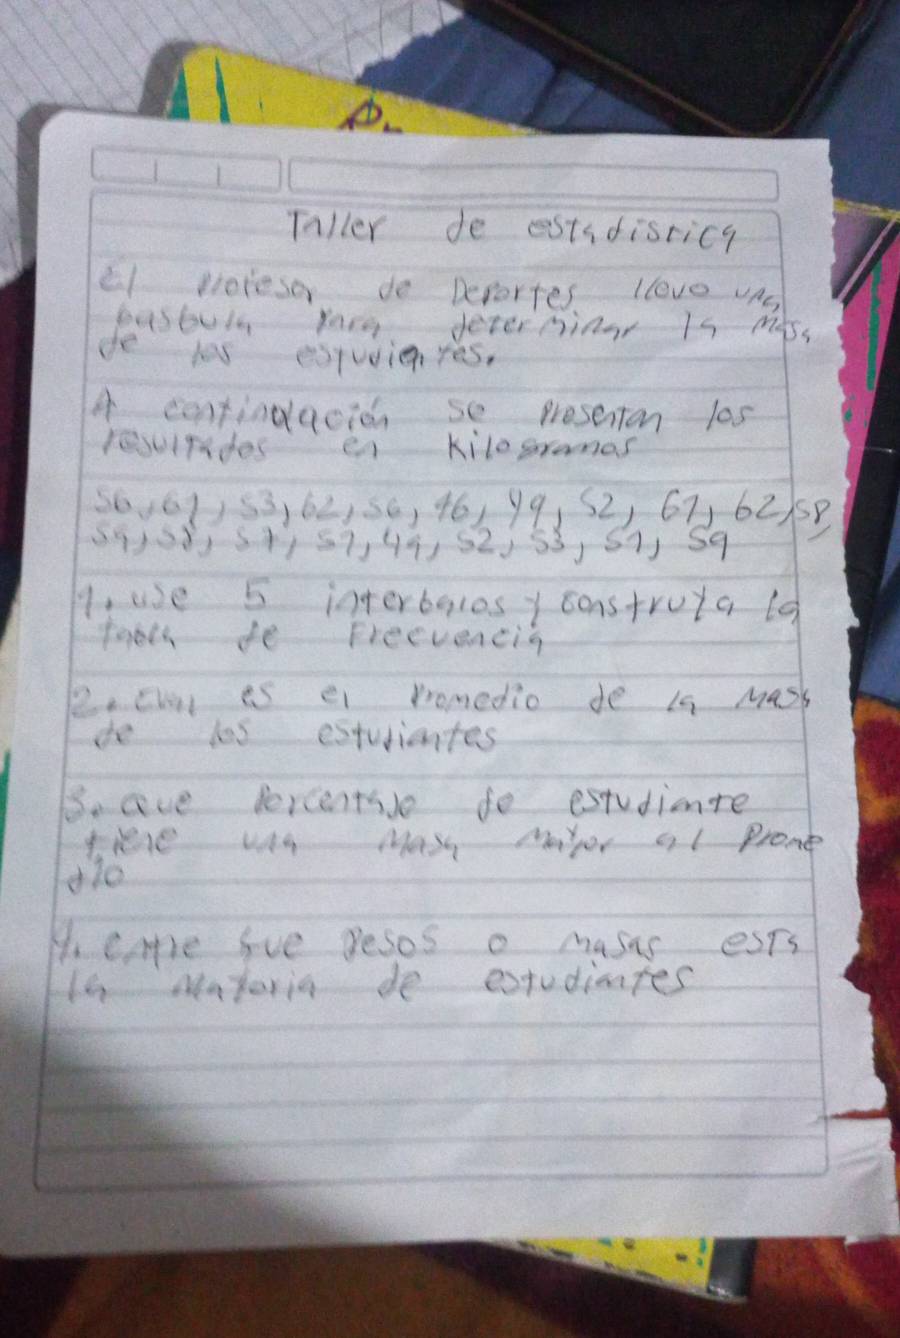 Taller de estadistica
El profesor de Deportes llevo una
basbula para determinar la masa
de los estudiantes.
A continuación se presentan los
resultados en Kilogramos
56, 61, 53, 62, 56, 46, 49, 52, 61, 62, 58,
59, 58, 57, 51, 49, 52, 53, 51, 59
1. use 5 interbalos y construya la
tabla de Frecuencia
2. cual es el Promedio de la masa
de los estudiantes
3. que Porcentaje de estudiante
tiene una masa mayor al Prome
dio
4. entre que pesos o masas esta
la mayoria de estudiantes